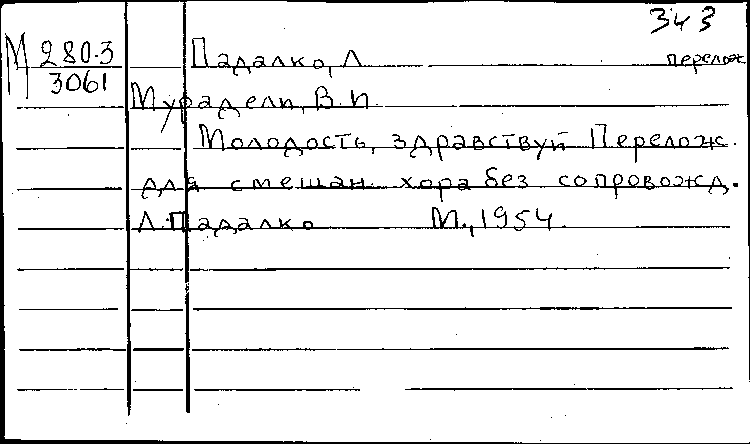 343
М 280-3
3061
Падалко, Л
перелож
Мурадели, В. И
Молодость, здравствуй Перелож.
для смешан. хора без сопровожд.
Л. Падалко М., 1954.